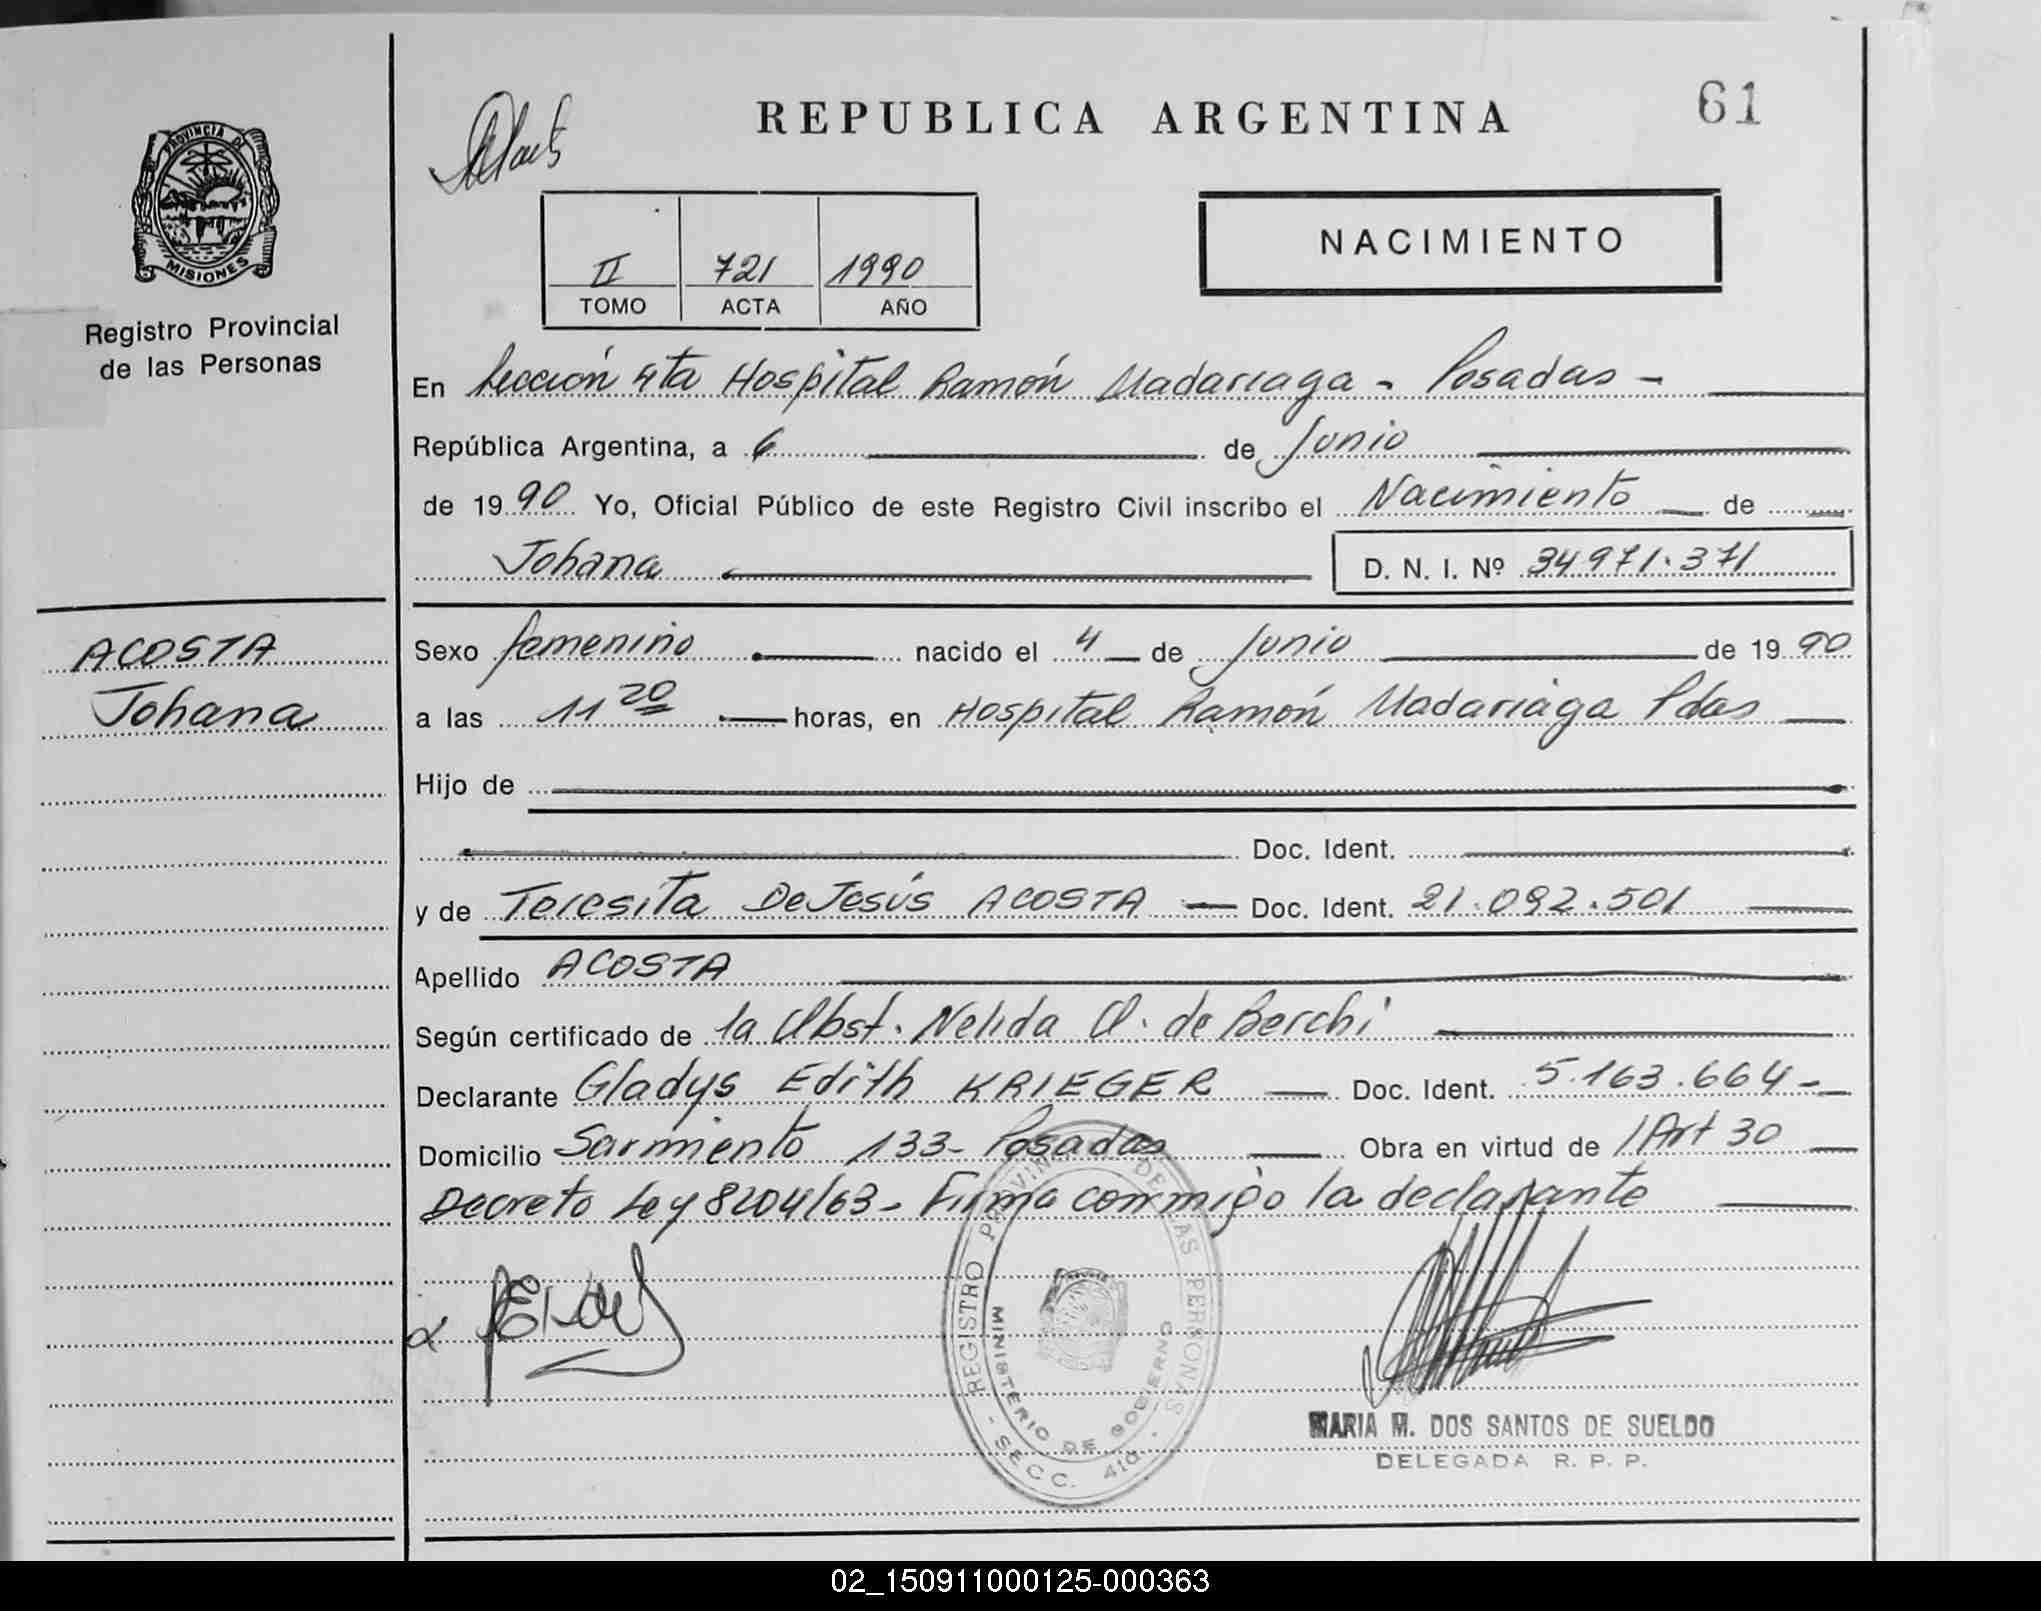 REPUBLICA ARGENTINA
61
PROVINCIA DE
MISIONES
Registro Provincial
de las Personas
II 721 1990
TOMO ACTA AÑO
NACIMIENTO
En Sección 4ta Hospital Ramón Madariaga - Posadas -
República Argentina, a 6 de Junio
de 19 90 Yo, Oficial Público de este Registro Civil inscribo el Nacimiento de
Johana D. N. I. Nº 34971.371
ACOSTA
Johana
Sexo femenino nacido el 4 de Junio de 19 90
a las 11 20 horas, en Hospital Ramón Madariaga Pdas
Hijo de
Doc. Ident.
y de Teresita De Jesús ACOSTA Doc. Ident. 21.092.501
Apellido ACOSTA
Según certificado de la Obst. Nelida A. de Berchi
Declarante Gladys Edith KRIEGER Doc. Ident. 5.163.664-
Domicilio Sarmiento 133- Posadas Obra en virtud de /Art 30
Decreto Ley 8204/63- Firma conmigo la declarante
REGISTRO PROVINCIAL DE LAS PERSONAS
MINISTERIO DE GOBIERNO
- SECC. 4ta. -
MARIA M. DOS SANTOS DE SUELDO
DELEGADA R. P. P.
02_150911000125-000363